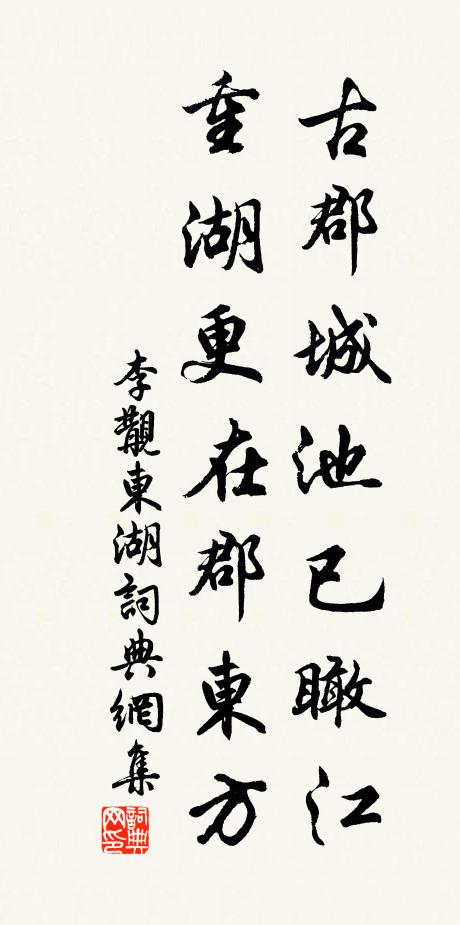 古郡城池已瞰江
重湖更在郡東方
李覯東湖詞典網集
詞典网印